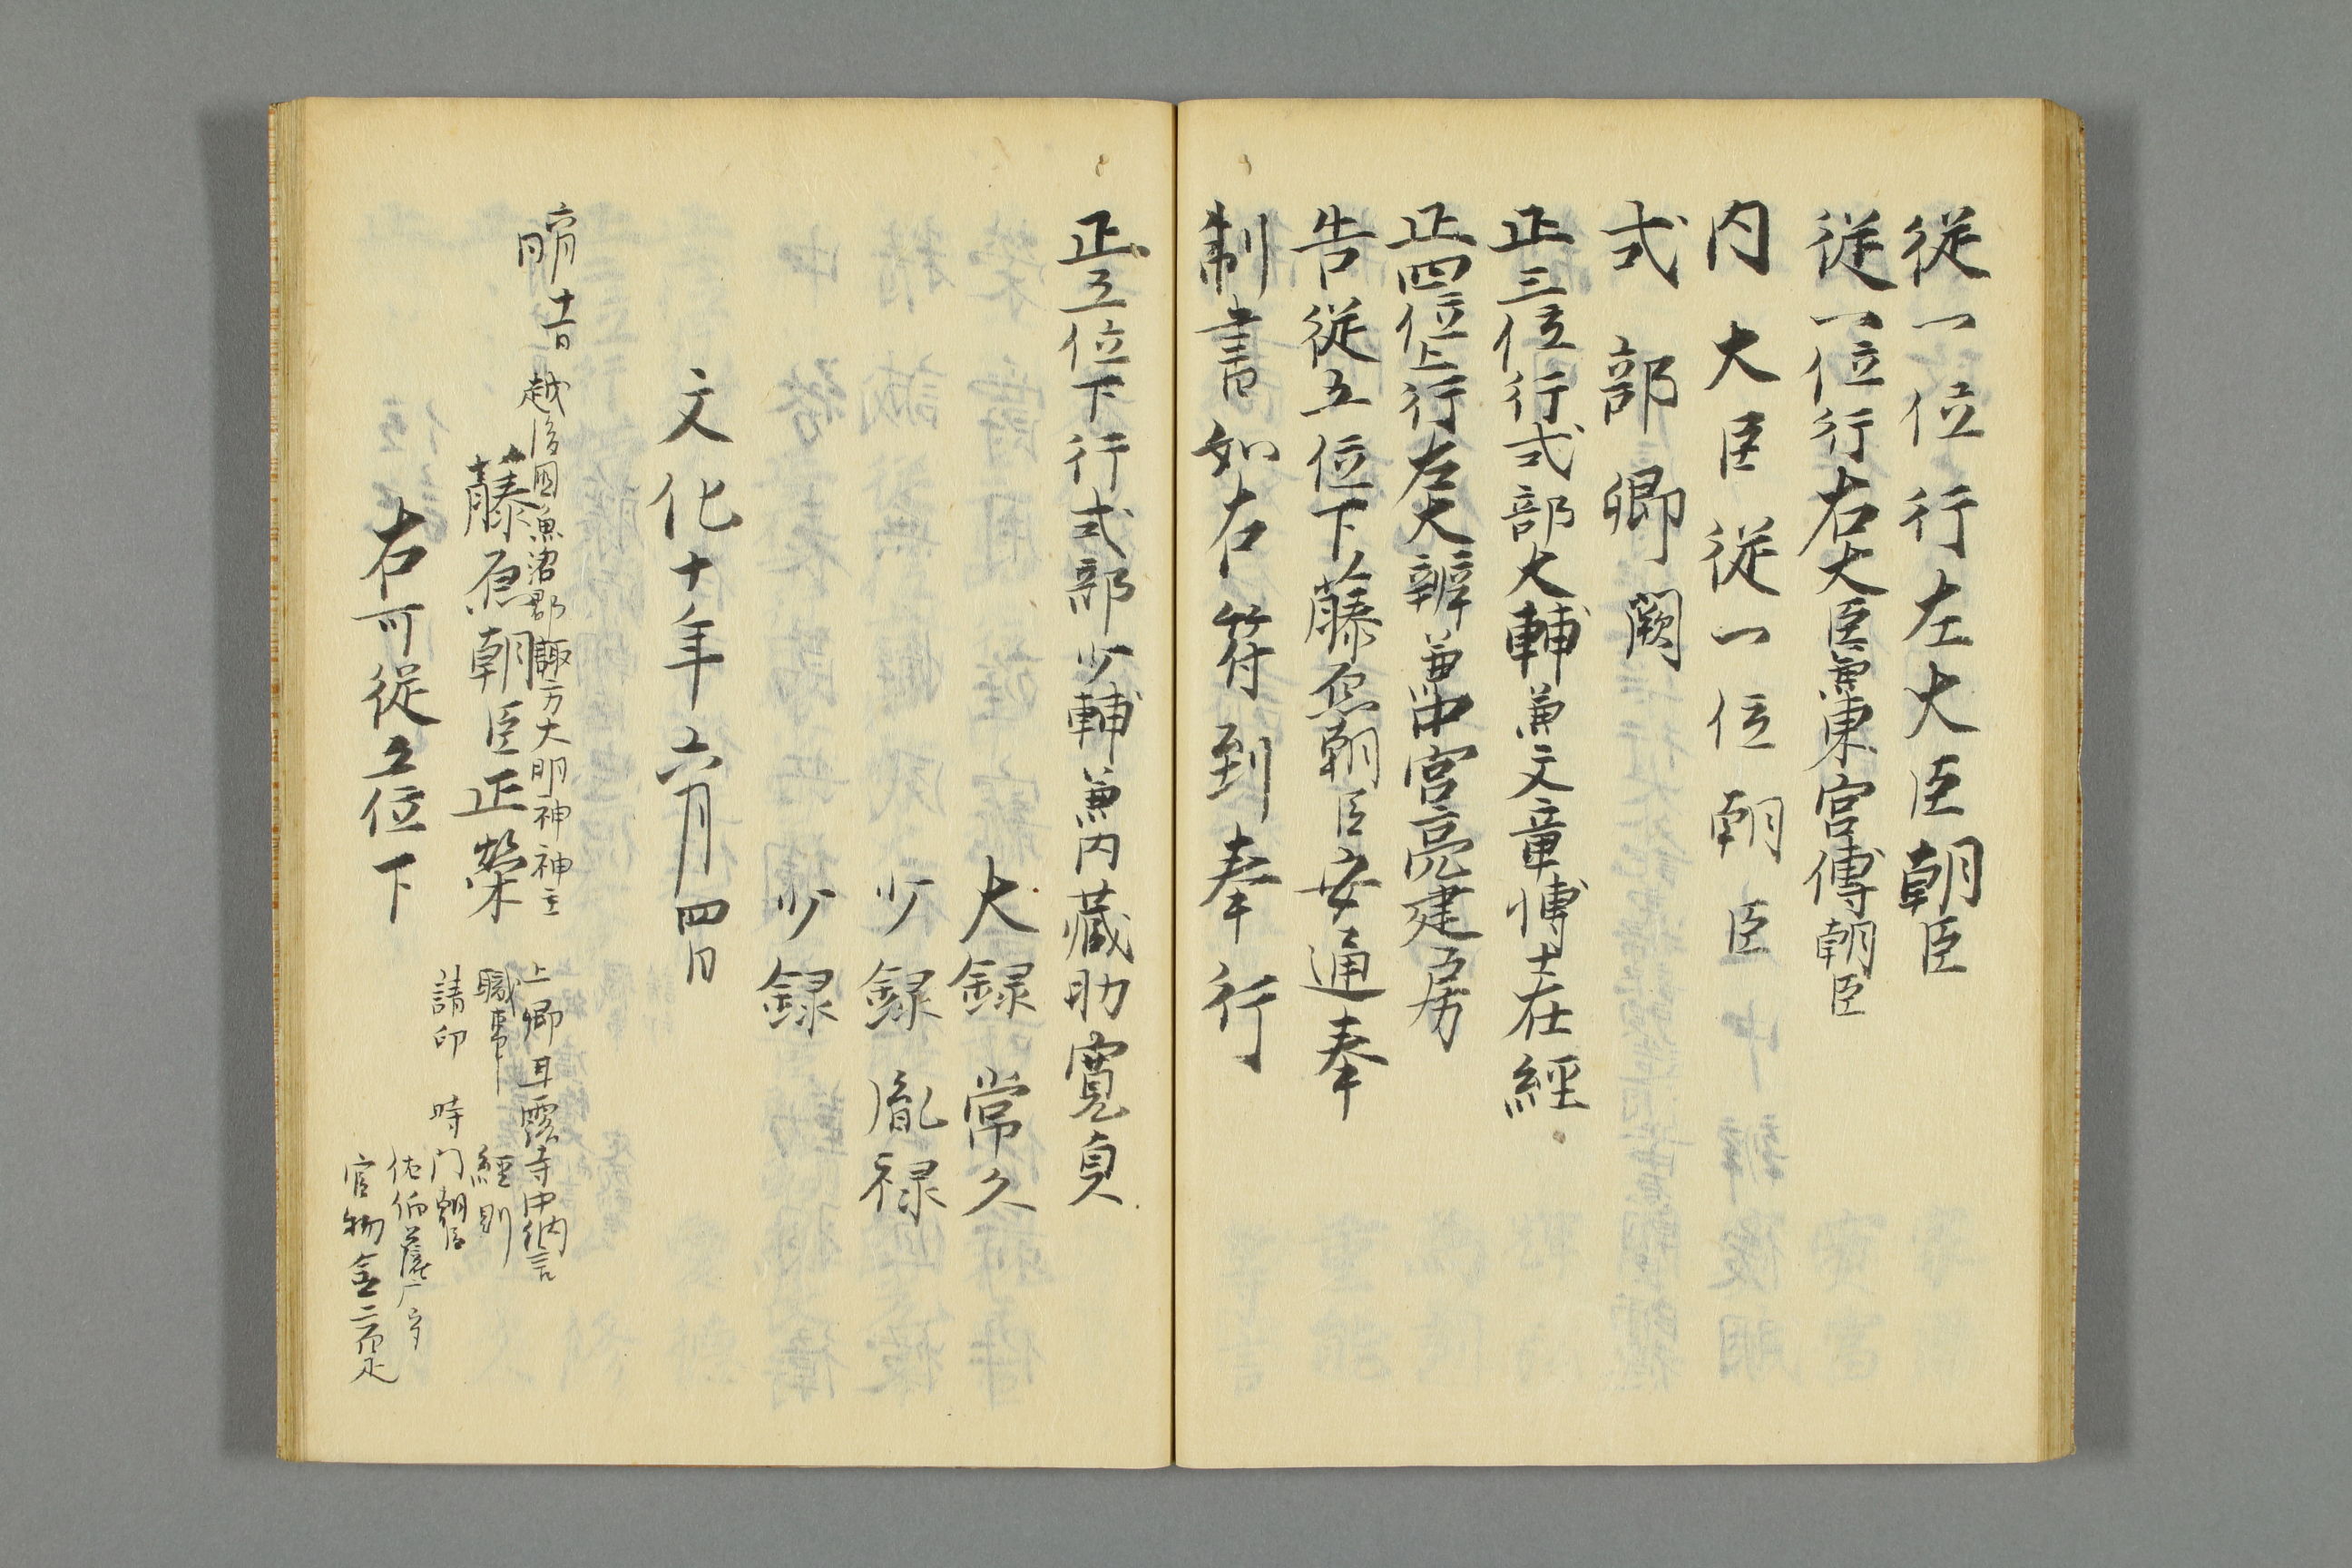 従一位行左大臣朝臣
従一位行右大臣兼東宮傅朝臣
内大臣従一位朝臣
式部卿闕
正三位行式部大輔兼文章博士在經
正四位上行左大辨兼中宮亮建房
告従五位下藤原朝臣安通奉
制書如右符到奉行
正五位下行式部少輔兼内藏助寛貞
大録常久
少録胤禄
少録
文化十年六月四日
同月十一日越後國魚沼郡諏方大明神神主
藤原朝臣正榮
右可従五位下
上卿甘露寺中納言
職事經則
請印時門朝臣
佐伯
官物金二百疋